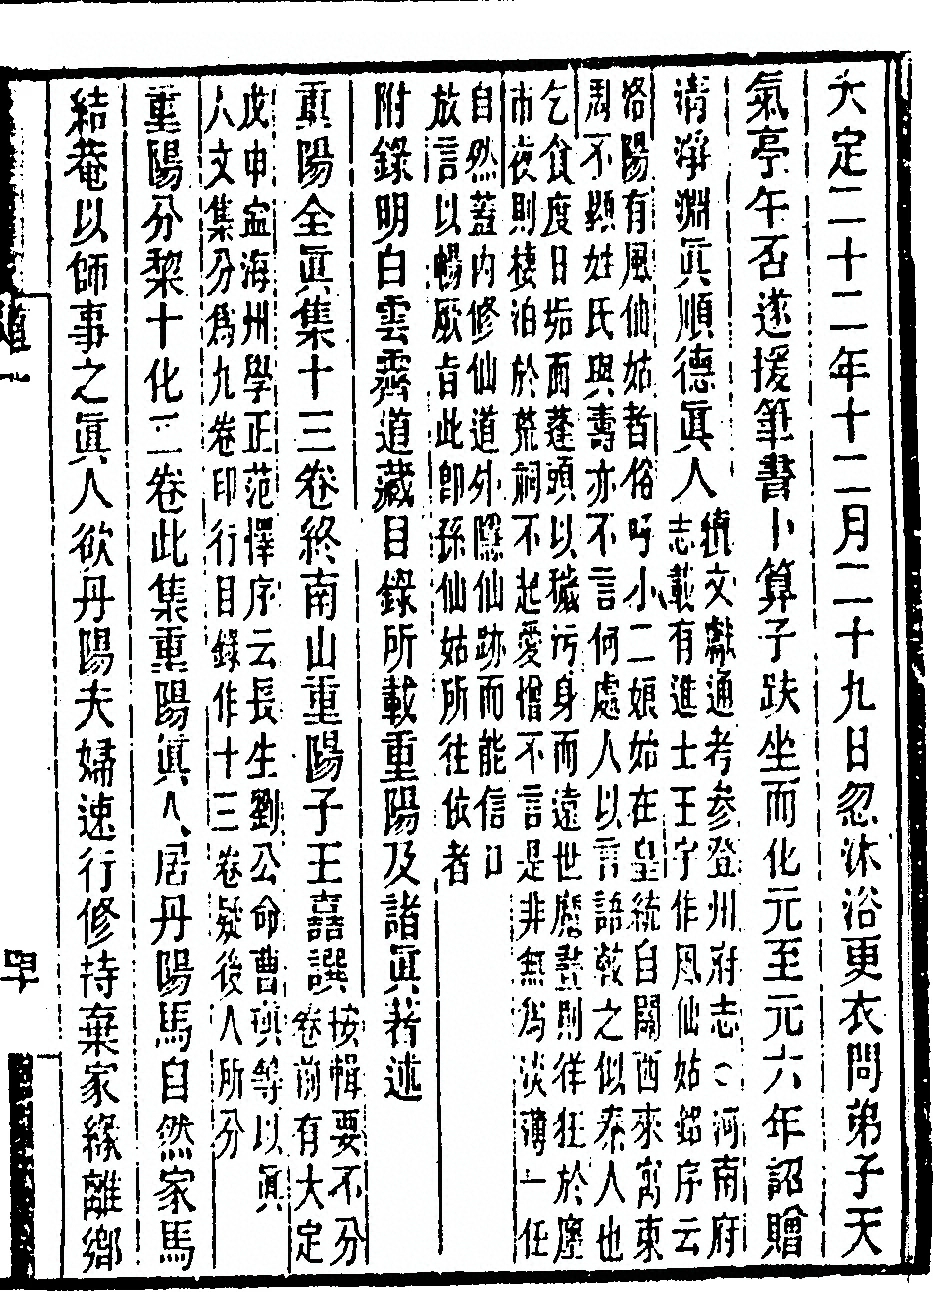 大定二十二年十二月二十九日忽沐浴更衣問弟子天
氣亭午否遂援筆書卜算子趺坐而化元至元六年詔贈
清淨淵真順德真人
續文獻通考參登州府志○河南府
志載有進士王宇作風仙姑銘序云
洛陽有風仙姑者俗呼小二娘始在皇統自關西來寓東
周不顯姓氏與壽亦不言何處人以言語較之似秦人也
乞食度日垢面蓬頭以穢污身而遠世魔晝則佯狂於廛
市夜則棲泊於荒祠不起愛憎不言是非無為淡薄一任
自然蓋內修仙道外隱仙跡而能信口
放言以暢厥旨此卽孫仙姑所往依者
附錄明白雲霽道藏目錄所載重陽及諸眞著述
重陽全眞集十三卷終南山重陽子王嚞譔
按輯要不分
卷前有大定
戊申寧海州學正范懌序云長生劉公命曹瑱等以眞
人文集分爲九卷印行目錄作十三卷疑後人所分
重陽分棃十化二卷此集重陽眞人居丹陽馬自然家馬
結菴以師事之眞人欲丹陽夫婦速行修持棄家緣離鄉
道一